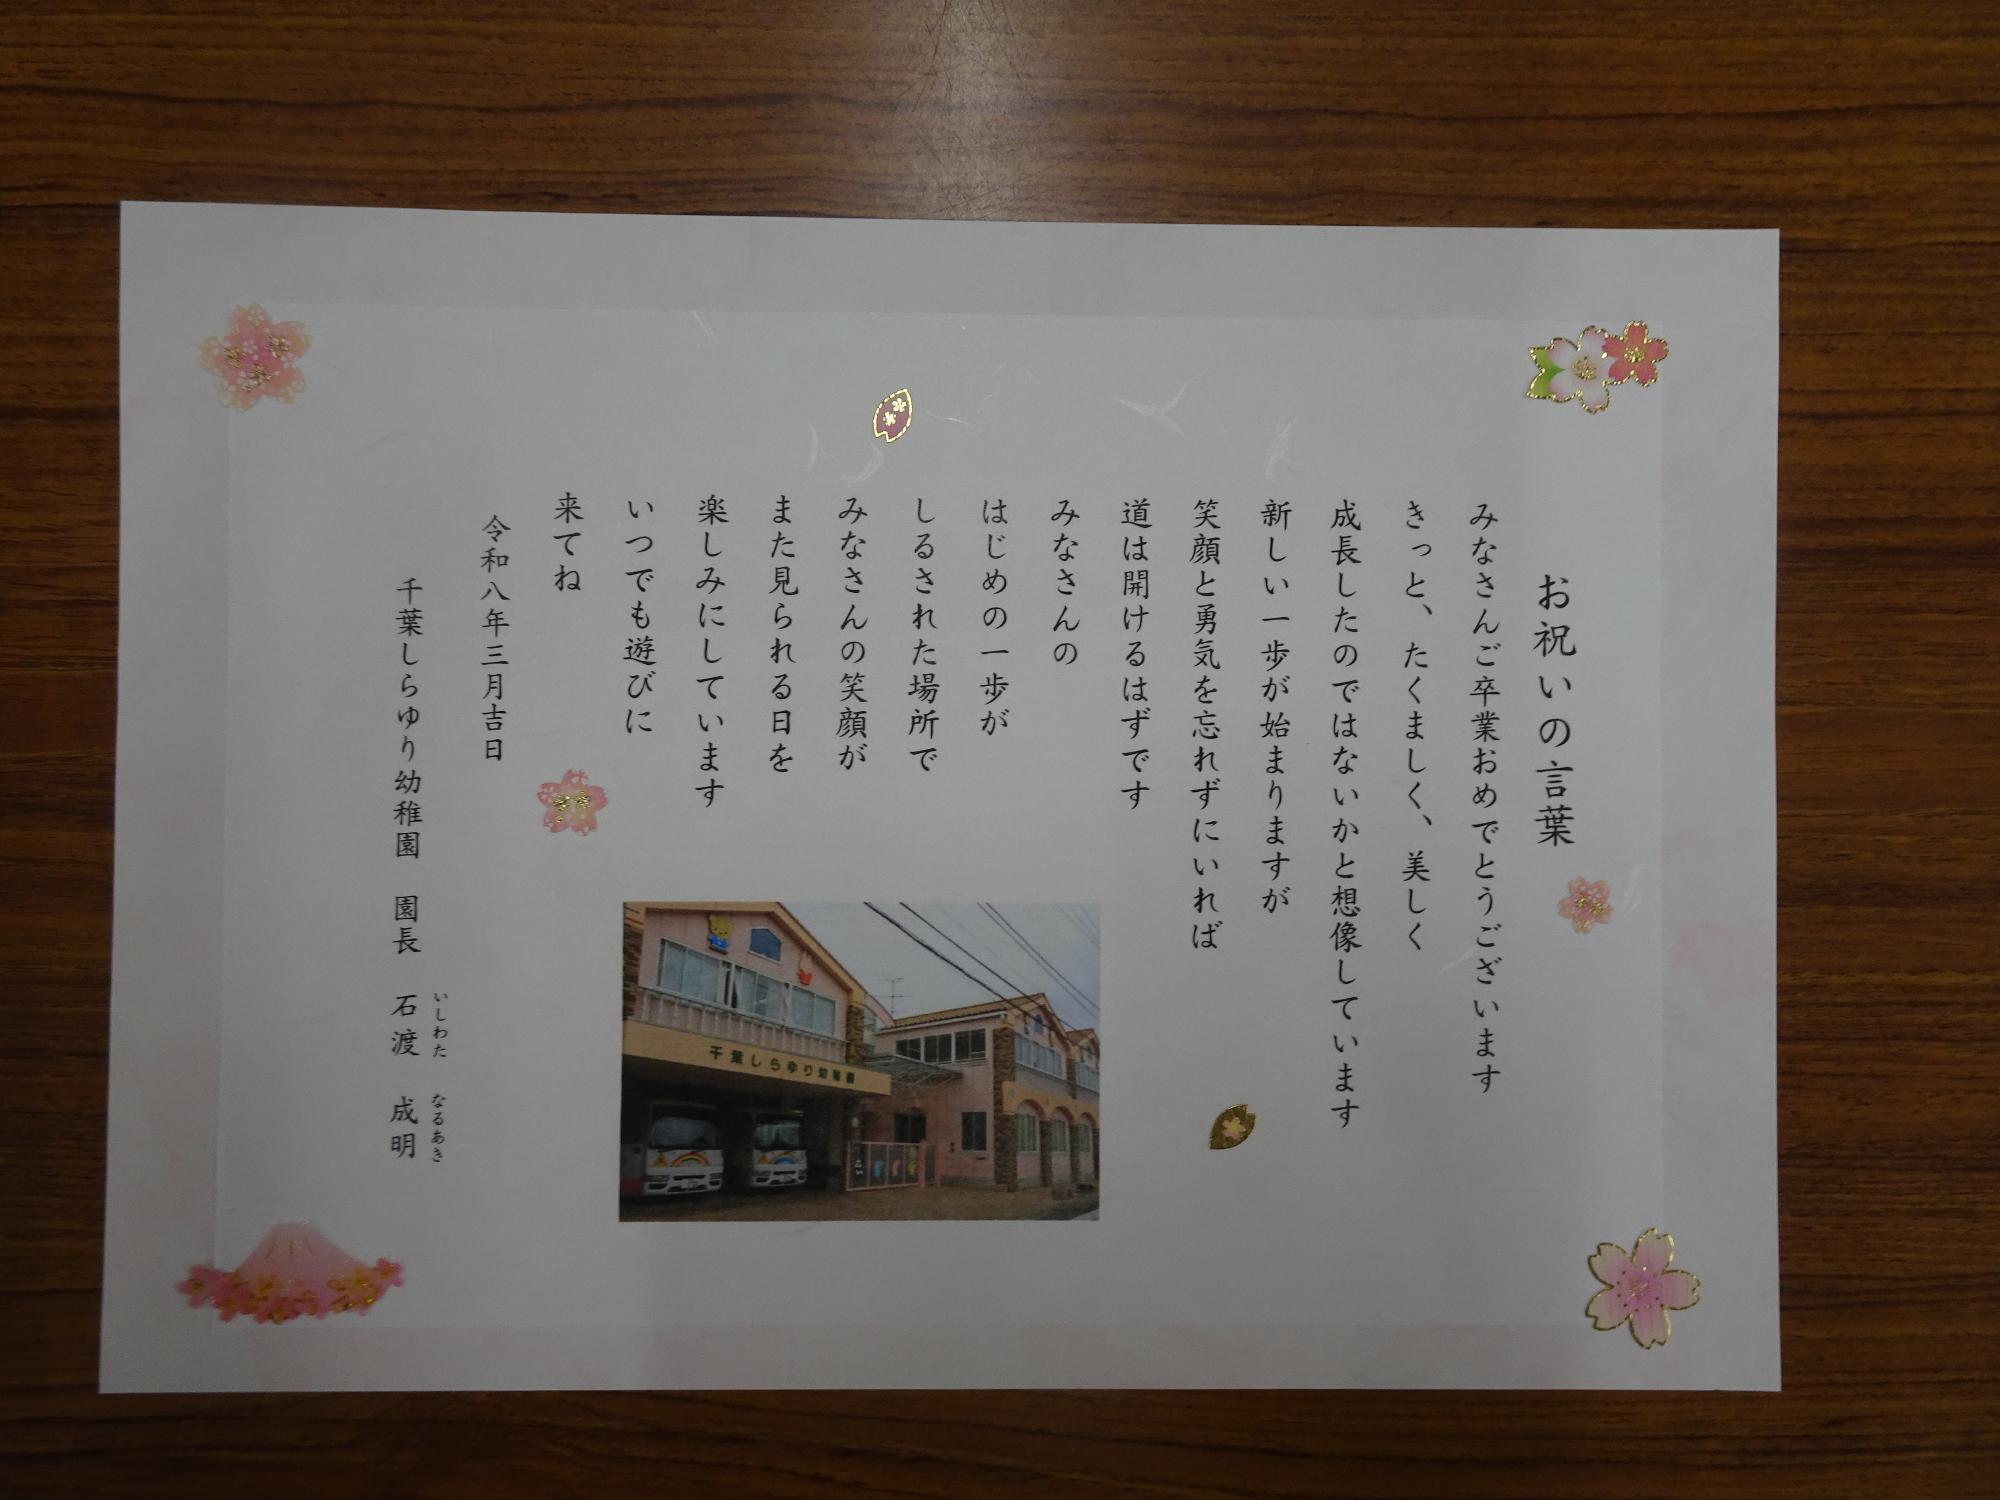 お祝いの言葉
みなさんご卒業おめでとうございます
きっと、たくましく、美しく
成長したのではないかと想像しています
新しい一歩が始まりますが
笑顔と勇気を忘れずにいれば
道は開けるはずです
みなさんの
はじめの一歩が
しるされた場所で
みなさんの笑顔が
また見られる日を
楽しみにしています
いつでも遊びに
来てね
令和八年三月吉日
千葉しらゆり幼稚園 園長 石渡 成明
いしわた なるあき
千葉しらゆり幼稚園